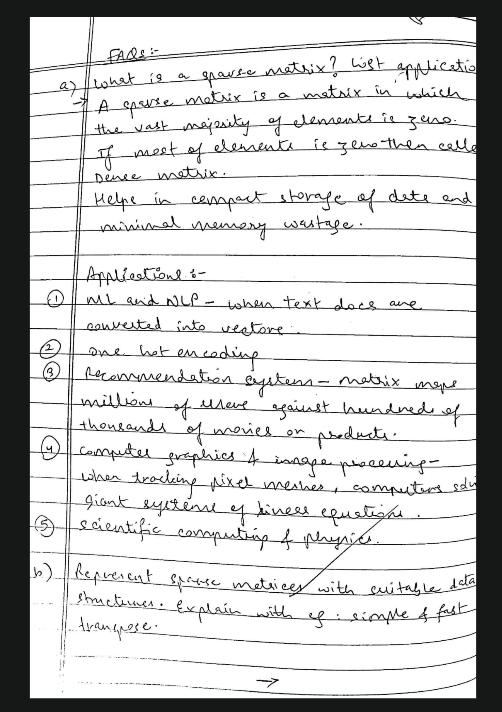 FAQs :-
a) What is a sparse matrix? List applicatio
→ A sparse matrix is a matrix in which
the vast majority of elements is zero.
If most of elements is zero then calle
Dense matrix.
Helps in compact storage of data and
minimal memory wastage.
Applications :-
① ML and NLP - when text docs are
converted into vectors.
② One hot encoding
③ Recommendation system - matrix maps
millions of users against hundreds of
thousands of movies or products.
④ Computer graphics & image processing -
when tracking pixel meshes, computers solv
giant systems of linear equations.
⑤ scientific computing & physics.
b) Represent sparse metrices with suitable data
structures. Explain with eg : simple & fast
transpose.
→